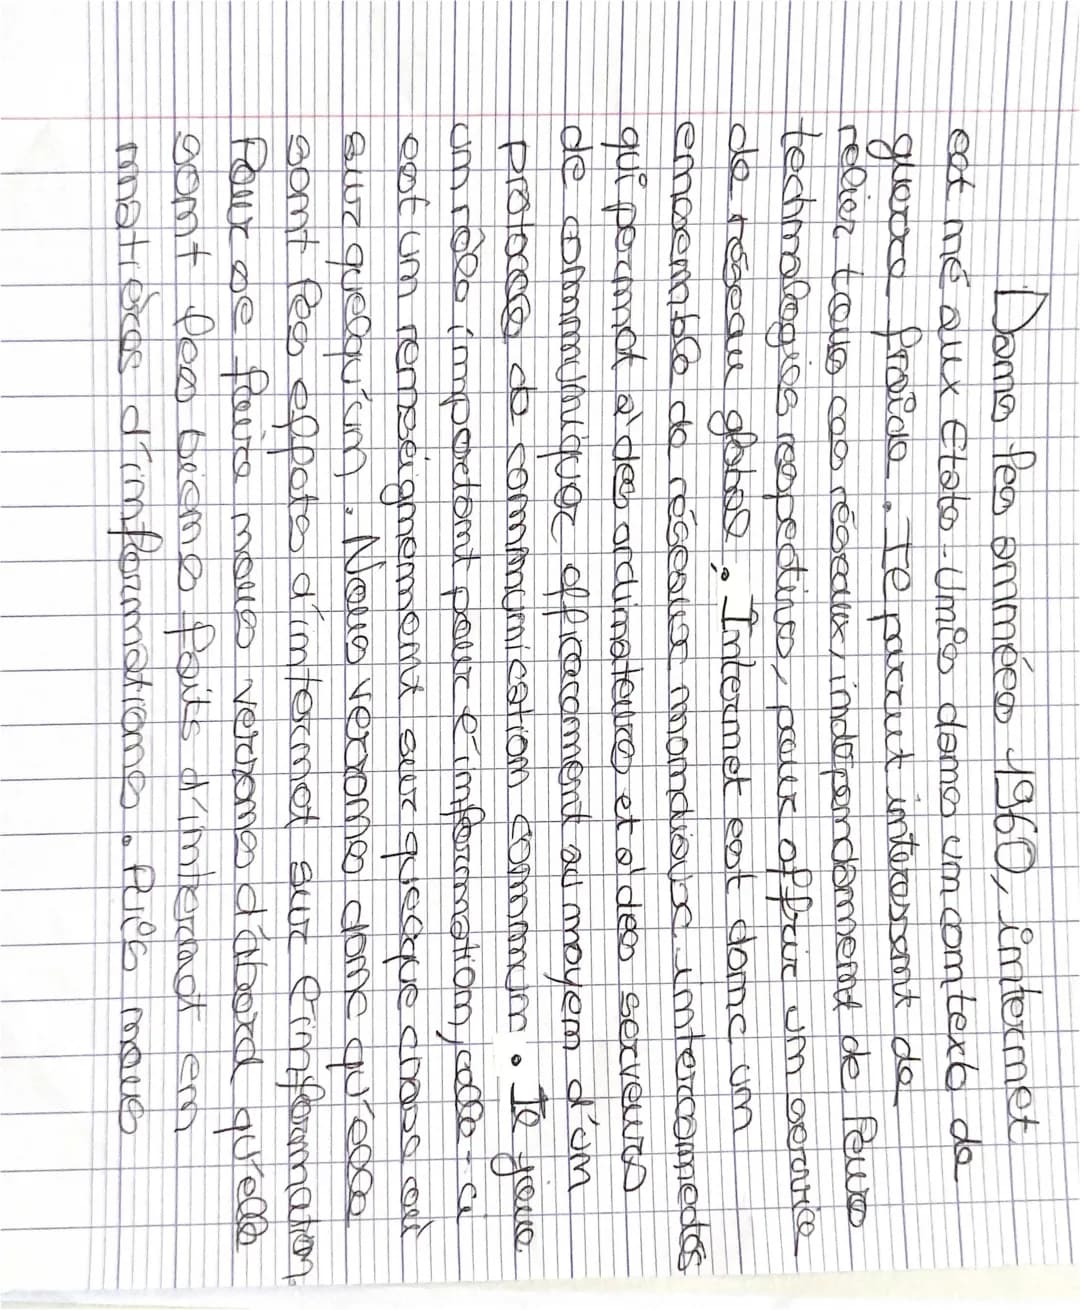 Dans les années 1960, internet
est né aux Etats-Unis dans un contexte de
guerre froide. Il parrut interessant de
relier tous ces réseaux, indépendamment de leurs
technologies respectives, pour offrir un service
de réseau global. Internet est donc un
ensemble de réseaux mondiaux interconnectés
qui permet à des ordinateurs et à des serveurs
de communiquer efficacement au moyen d'un
protocole de communication commun. Il joue
un rôle important pour l'information, celle-ci
est un renseignement sur quelque chose ou
sur quelqu'un. Nous verrons donc qu'elle
sont les effets d'internet sur l'information.
Pour se faire nous verrons d'abord qu'elle
sont les biens faits d'internet en
matières d'informations. Puis nous